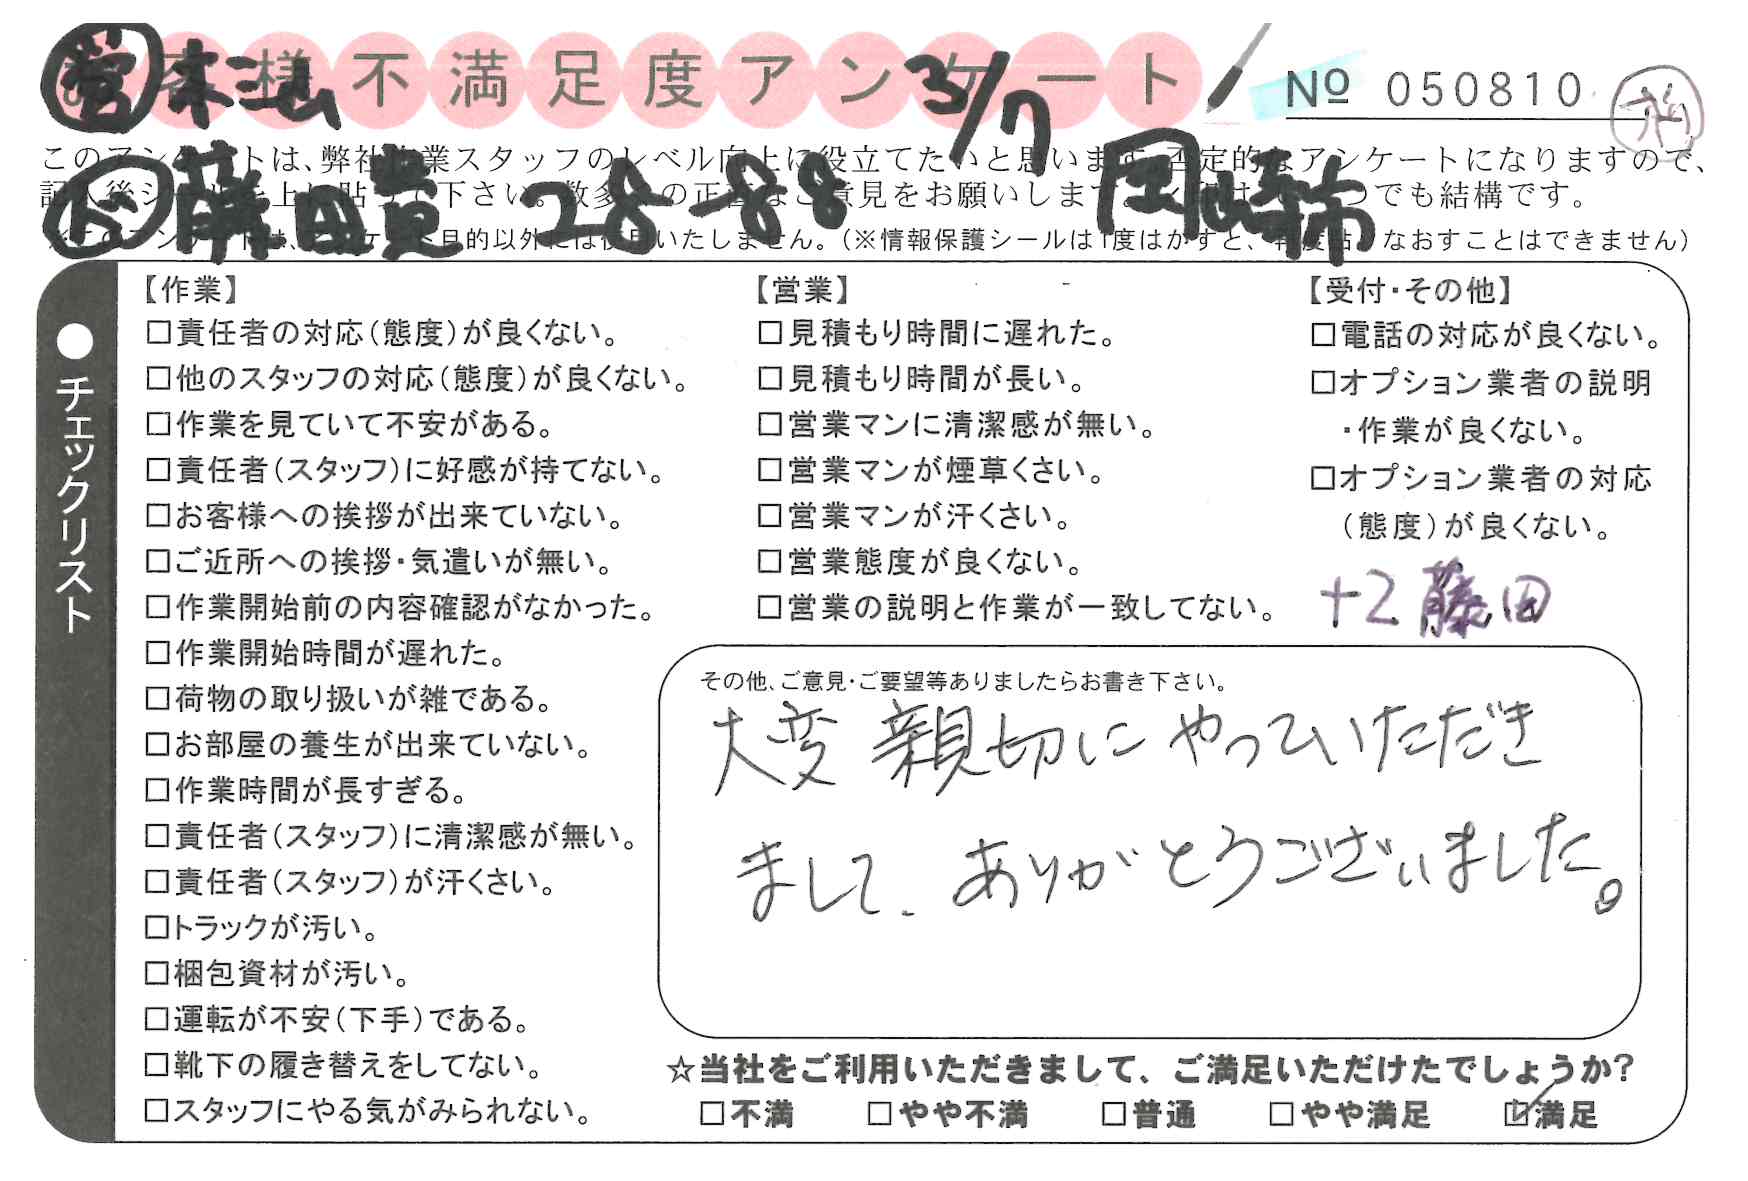 お客様不満足度アンケート
№ 050810
営 本山 3/7
このアンケートは、弊社作業スタッフのレベル向上に役立てたいと思います。否定的なアンケートになりますので、
記入後シールを上に貼って下さい。数多くの正直なご意見をお願いします。
つでも結構です。
藤田貴 28-88 岡崎市
※このアンケートは、アンケート目的以外には使用いたしません。(※情報保護シールは1度はがすと、再度貼りなおすことはできません)
●チェックリスト
【作業】
□責任者の対応(態度)が良くない。
□他のスタッフの対応(態度)が良くない。
□作業を見ていて不安がある。
□責任者(スタッフ)に好感が持てない。
□お客様への挨拶が出来ていない。
□ご近所への挨拶・気遣いが無い。
□作業開始前の内容確認がなかった。
□作業開始時間が遅れた。
□荷物の取り扱いが雑である。
□お部屋の養生が出来ていない。
□作業時間が長すぎる。
□責任者(スタッフ)に清潔感が無い。
□責任者(スタッフ)が汗くさい。
□トラックが汚い。
□梱包資材が汚い。
□運転が不安(下手)である。
□靴下の履き替えをしてない。
□スタッフにやる気がみられない。
【営業】
□見積もり時間に遅れた。
□見積もり時間が長い。
□営業マンに清潔感が無い。
□営業マンが煙草くさい。
□営業マンが汗くさい。
□営業態度が良くない。
□営業の説明と作業が一致してない。
【受付・その他】
□電話の対応が良くない。
□オプション業者の説明
・作業が良くない。
□オプション業者の対応
(態度)が良くない。
+2 藤田
その他、ご意見・ご要望等ありましたらお書き下さい。
大変親切にやっていただき
まして、ありがとうございました。
☆当社をご利用いただきまして、ご満足いただけたでしょうか?
□不満 □やや不満 □普通 □やや満足 ☑満足